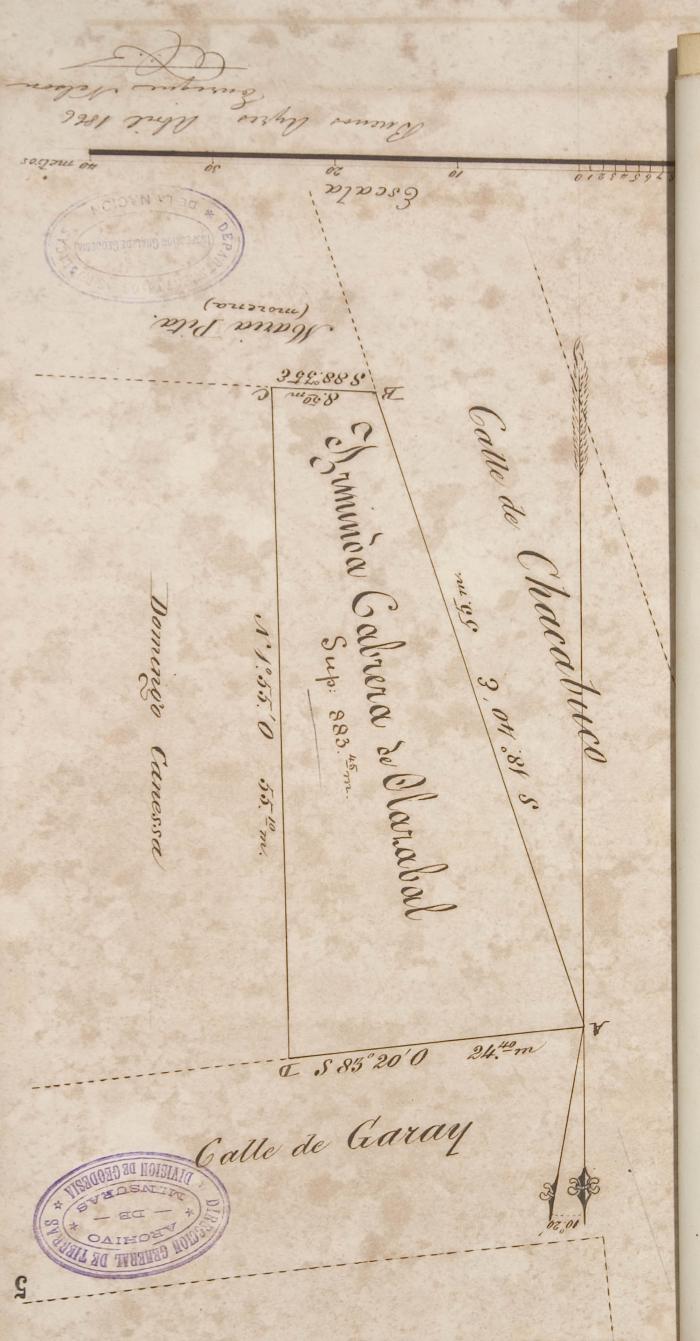 Calle de Garay
Calle de Chacabuco
Arminda Cabrera de Olazabal
Sup: 883.45 m.
Domingo Canessa
Maria Pita.
(morena)
A
B
C
D
S 18.° 40.' E
55. m.
S 88.° 55' E
8.50 m
N 1.° 55.' O 55.10 m.
S 85° 20,' O 24.40 m
10° 20'
Escala
40 metros 30 20 10 0 1 2 3 4 5 6 7
Buenos Ayres Abril 1866
Enrique Nelson
INSPECCION GRAL DE GEODESIA
DE LA NACION
DIRECCION GENERAL DE TIERRAS
ARCHIVO
— DE —
MENSURAS
DIVISION DE GEODESIA
5